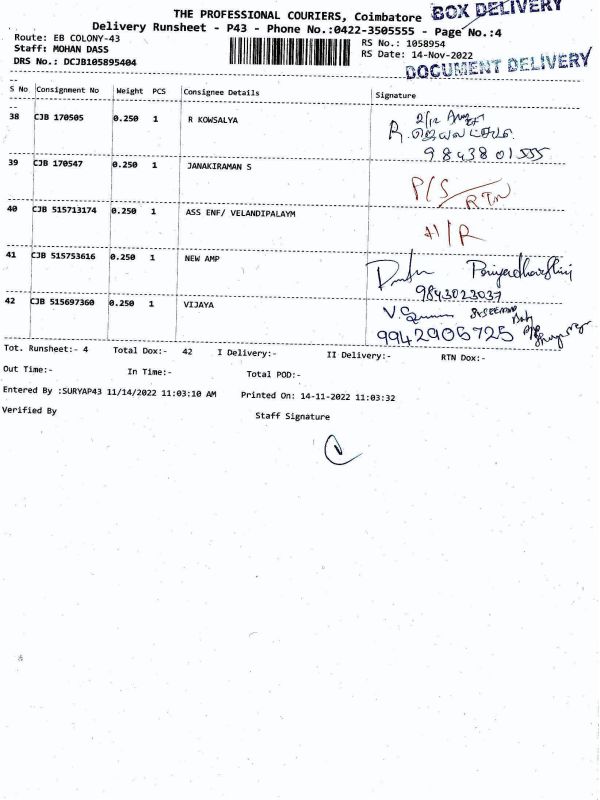 THE PROFESSIONAL COURIERS, Coimbatore
BOX DELIVERY
Delivery Runsheet - P43 - Phone No.:0422-3505555 - Page No.:4
Route: EB COLONY-43
RS No.: 1058954
Staff: MOHAN DASS
RS Date: 14-Nov-2022
DRS No.: DCJB105895404
DOCUMENT DELIVERY
S No Consignment No Weight PCS Consignee Details Signature
38 CJB 170505 0.250 1 R KOWSALYA
R.
9843801555
39 CJB 170547 0.250 1 JANAKIRAMAN S
P/S RTN
40 CJB 515713174 0.250 1 ASS ENF/ VELANDIPALAYM
41 CJB 515753616 0.250 1 NEW AMP
Priyadharshini
9843023037
42 CJB 515697360 0.250 1 VIJAYA
9942906725
Tot. Runsheet:- 4 Total Dox:- 42 I Delivery:- II Delivery:- RTN Dox:-
Out Time:- In Time:- Total POD:-
Entered By :SURYAP43 11/14/2022 11:03:10 AM Printed On: 14-11-2022 11:03:32
Verified By Staff Signature